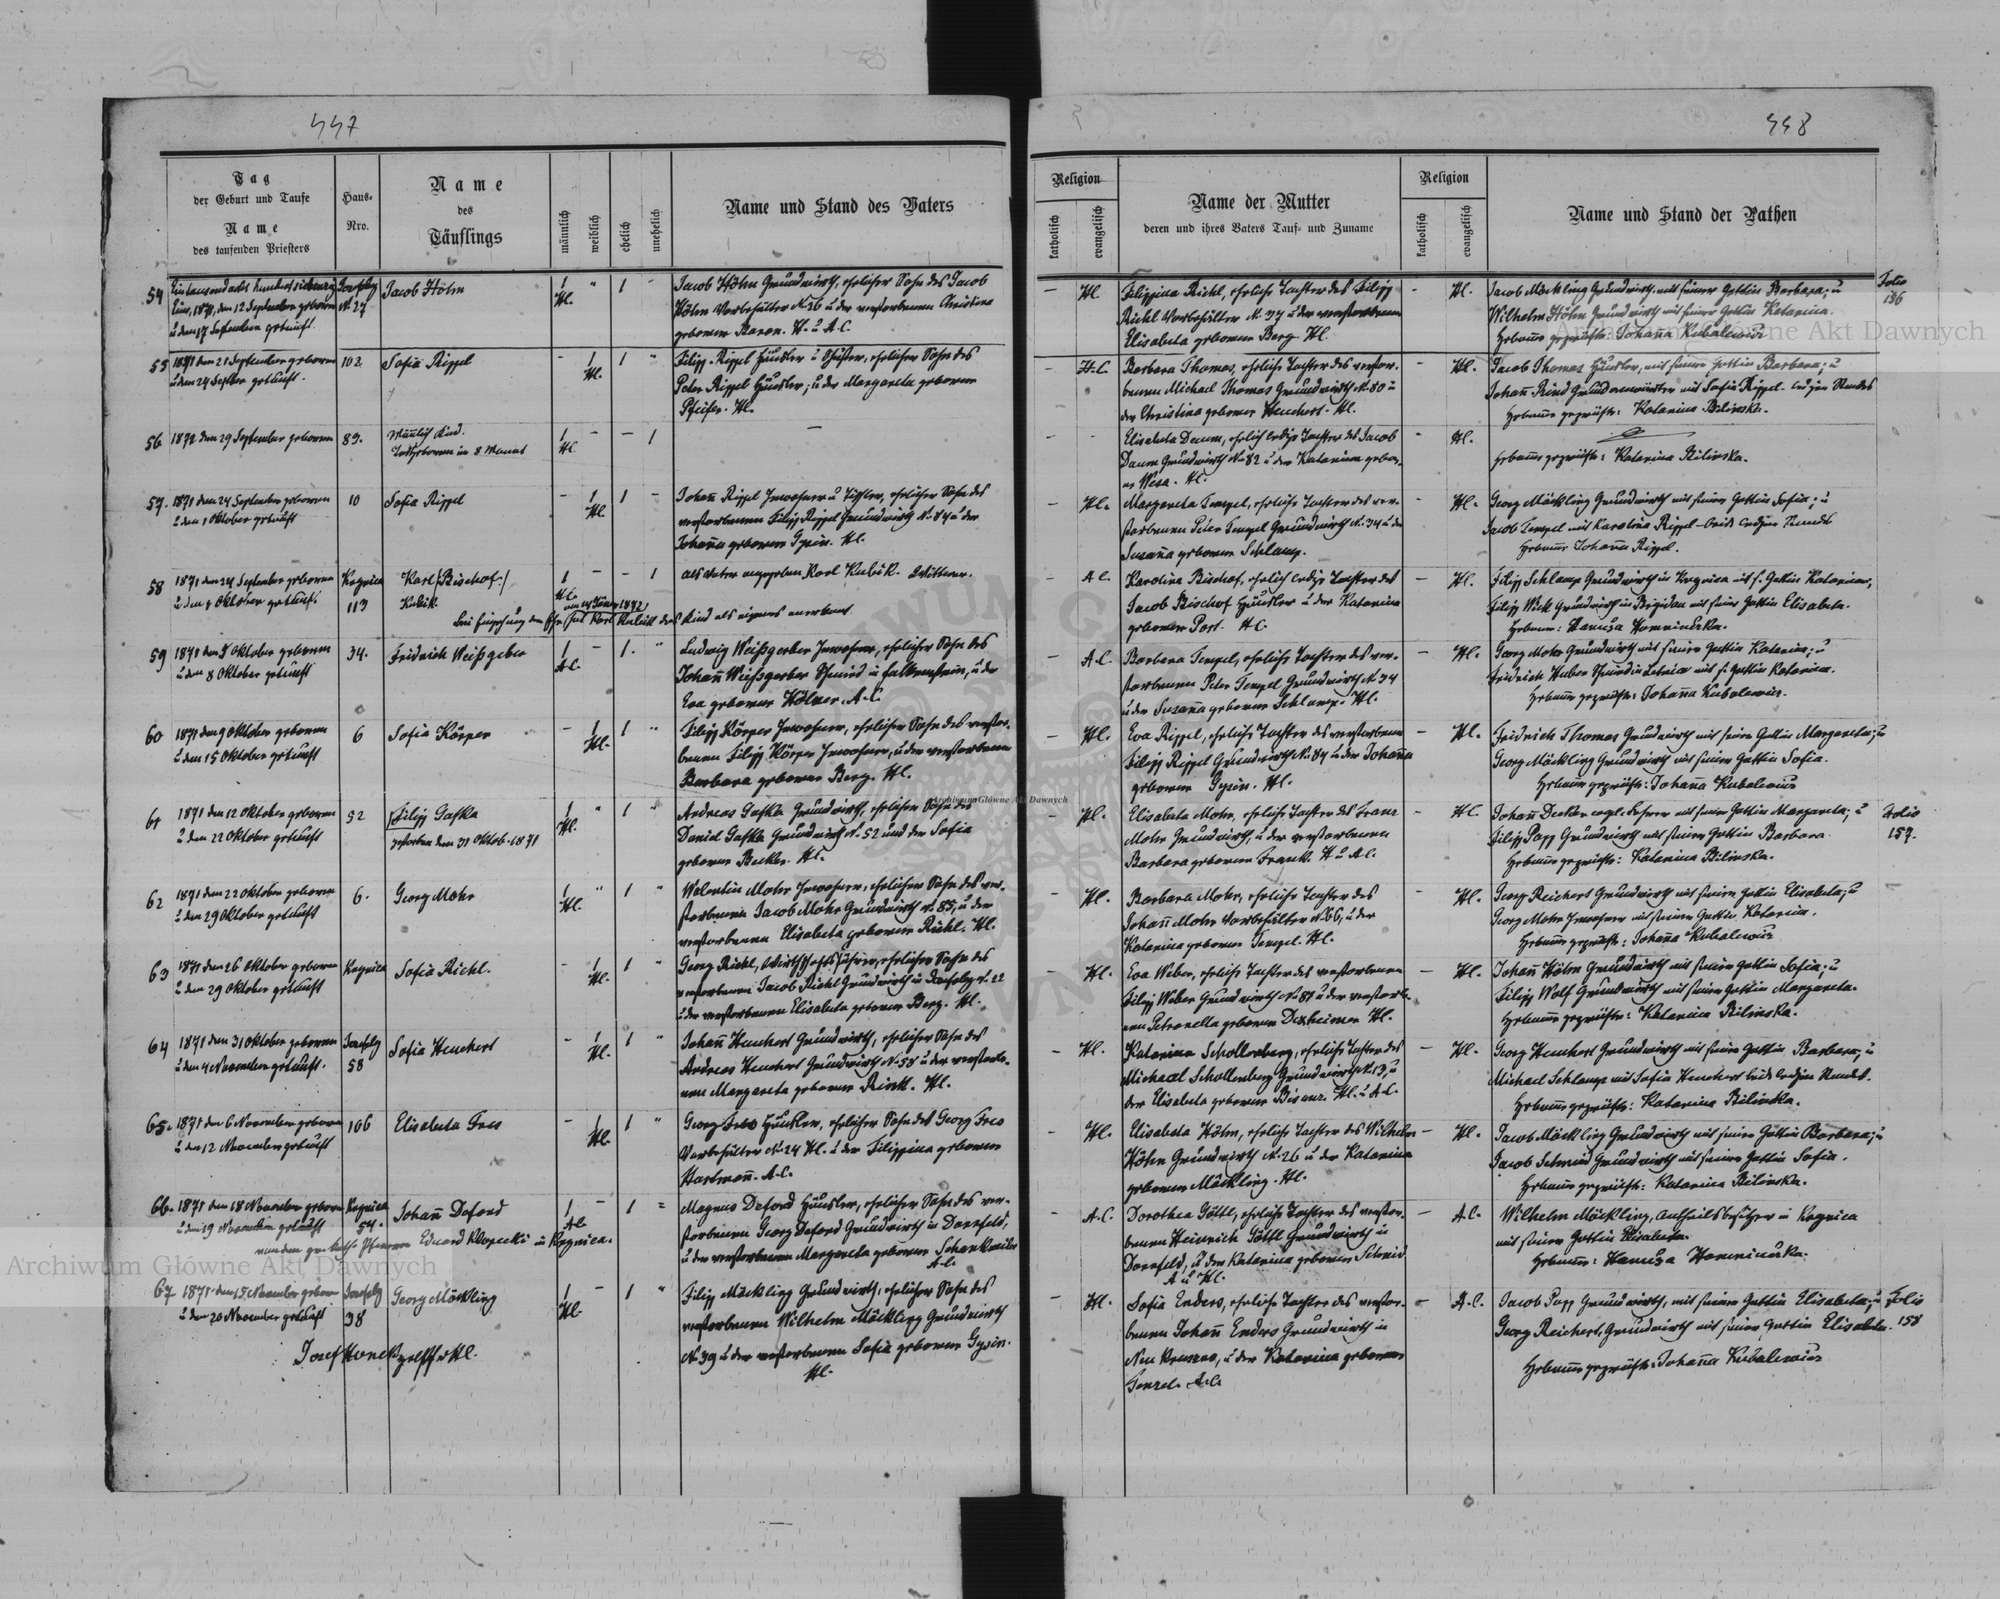 447
Tag
der Geburt und Taufe
Name
des taufenden Priesters
Haus-
Nro.
Name
des
Täuflings
männlich
weiblich
ehelich
unehelich
Name und Stand des Vaters
54
Eintausendacht hundert siebenzig
Eins, 1871, den 12 September geboren
u den 17 September getauft.
Josefsbg
N. 27
Jacob Höhn
1
Hl.
1
Jacob Höhn Grundwirth, ehelicher Sohn des Jacob
Höhn Vorbehälter N. 26 u der verstorbenen Christina
geborene Baron. H. u A.C.
55
1871 den 21 September geboren
u den 24 Septber getauft.
102
Sofia Rippel
1
Hl.
1
Filipp Rippel Häusler u Schuster, ehelicher Sohn des
Peter Rippel Häusler; u der Margareta geborene
Pfeifer. Hl.
56
29 September geboren
83.
Männlich Kind.
Todtgeboren im 8 Monat
1
1
57.
1871 den 24 September geboren
u den 1 Oktober getauft
10
Sofia Rippel
1
Hl.
1
Johann Rippel Inwohner u Tischler, ehelicher Sohn des
verstorbenen Filipp Rippel Grundwirth N. 84 u der
Johanna geborene Gysin. Hl.
58
1871 den 24 September geboren
u den 8 Oktober getauft.
Kognica
113
Karl /:Bischof:/
Kubik
1
1
als Vater angegeben Karl Kubik.
am 14 Jänner 1872
Karl Kubik das Kind als eigenes anerkannt
59
1871 den 3 Oktober geboren
u den 8 Oktober getauft
34.
Fridrich Weißgerber
1
A.C.
1.
Ludwig Weißgerber Inwohner, ehelicher Sohn des
Johann Weißgerber Schmied in Falkenstein, u der
Eva geborene Hölzer. A.C.
60
1871 den 9 Oktober geboren
u den 15 Oktober getauft
6
Sofia Körper
1
Hl.
1
Filipp Körper Inwohner, ehelicher Sohn des verstor-
benen Filipp Körper Inwohner, u der verstorbenen
Barbara geborene Berg. Hl.
61
1871 den 12 Oktober geboren
u den 22 Oktober getauft
52
Filipp Gafka
gestorben den 31 Oktob. 1871
1
Hl.
1
Andreas Gafka Grundwirth, ehelicher Sohn des
Daniel Gafka Grundwirth N. 52 und der Sofia
geborene Becker. Hl.
62
1871 den 22 Oktober geboren
u den 29 Oktober getauft
6.
Georg Mohr
1
Hl.
1
Walentin Mohr Inwohner, ehelicher Sohn des ver-
storbenen Jacob Mohr Grundwirth N. 85, u der
verstorbenen Elisabeta geborene Richl. Hl.
63
1871 den 26 Oktober geboren
u den 29 Oktober getauft
Kognica
Sofia Richl.
1
Hl.
1
Georg Richl, Wirthschaftsführer, ehelicher Sohn des
verstorbenen Jacob Richl Grundwirth in Josefsbg N. 22
u der verstorbenen Elisabeta geborene Berg. Hl.
64
1871 den 31 Oktober geboren
u den 4 November getauft.
Josefsbg
58
Sofia Heuchert
1
Hl.
1
Johann Heuchert Grundwirth, ehelicher Sohn des
Andreas Heuchert Grundwirth N. 58 u der verstorbe-
nen Margareta geborene Rink. Hl.
65.
1871 den 6 November geboren
u den 12 November getauft
106
Elisabeta Fres
1
Hl.
1
Georg Fres Häusler, ehelicher Sohn des Georg Fres
Vorbehälter N. 24 Hl. u der Filippina geborene
Hartmann. A.C.
66.
1871 den 18 November geboren
u den 19 November getauft
von dem Pfarrer Eduard Klopecki in Kognica.
Kognica
54.
Johann Deford
1
A.C.
1
Magnus Deford Häusler, ehelicher Sohn des ver-
storbenen Georg Deford Grundwirth in Dornfeld,
u der verstorbenen Margareta geborene Schankweiler
A.C.
67
1871 den 15 November geboren
u den 20 November getauft
Josefsbg
38
Georg Möckling
1
Hl.
1
Filipp Möckling Grundwirth, ehelicher Sohn des
verstorbenen Wilhelm Möckling Grundwirth
N. 39 u der verstorbenen Sofia geborene Gysin.
Hl.
448
Religion
katholisch
evangelisch
Name der Mutter
deren und ihres Vaters Tauf- und Zuname
Religion
katholisch
evangelisch
Name und Stand der Pathen
Hl
Filippina Richl, eheliche Tochter des Filipp
Richl Vorbehälter N. 37 u der verstorbenen
Elisabeta geborene Berg. Hl.
Hl.
Jacob Möckling Grundwirth mit seiner Gattin Barbara; u
Wilhelm Höhn Grundwirth mit seiner Gattin Katarina.
Hebamme geprüfte: Johanna Kubalewicz
Folio
156
H.C
Barbara Thomas, eheliche Tochter des verstor-
benen Michael Thomas Grundwirth N. 80 u
der Christina geborene Heuchert. Hl.
Hl.
Jacob Thomas Häusler, mit seiner Gattin Barbara; u
mit Sofia Rippel ledigen Standes
Hebamme geprüfte: Katarina Bilinska.
Elisabeta Daum, ehelich ledige Tochter des Jacob
Daum Grundwirth N. 82 u der Katarina gebor-
ne Wesa. Hl.
Hl.
Hebamme geprüfte: Katarina Bilinska.
Hl.
Margareta Tempel, eheliche Tochter des ver-
storbenen Peter Tempel Grundwirth N. 34 u der
Susanna geborene Schlamp.
Hl.
Georg Möckling Grundwirth mit seiner Gattin Sofia; u
Jacob Tempel mit Karolina Rippel beide ledigen Standes
Hebamme Johanna Rippel.
A.C.
Karolina Bischof, ehelich ledige Tochter des
Jacob Bischof Häusler u der Katarina
geborene Port. H.C.
Hl.
Filipp Schlamp Grundwirth in Kognica mit s. Gattin Katarina,
Filipp Wick Grundwirth in Brigidau mit seiner Gattin Elisabeta.
Hebamme: Hanuza Homniuzka.
A.C.
Barbara Tempel, eheliche Tochter des ver-
storbenen Peter Tempel Grundwirth N. 34
u der Susanna geborene Schlamp. Hl.
Hl.
Georg Mohr Grundwirth mit seiner Gattin Katarina; u
Fridrich Huber mit s. Gattin Katarina.
Hebamme geprüfte: Johanna Kubalewicz.
Hl.
Eva Rippel, eheliche Tochter des verstorbenen
Filipp Rippel Grundwirth N. 84 u der Johanna
geborene Gysin. Hl.
Hl.
Fridrich Thomas Grundwirth mit seiner Gattin Margareta; u
Georg Möckling Grundwirth mit seiner Gattin Sofia.
Hebamme geprüfte: Johanna Kubalewicz
Hl.
Elisabeta Mohr, eheliche Tochter des Franz
Mohr Grundwirth, u der verstorbenen
Barbara geborene Frank. H u A.C.
H.C
Johann Decker evgl. Lehrer mit seiner Gattin Margareta; u
Filipp Popp Grundwirth mit seiner Gattin Barbara.
Hebamme geprüfte: Katarina Bilinska.
Folio
157.
Hl.
Barbara Mohr, eheliche Tochter des
Johann Mohr Vorbehälter N. 66, u der
Katarina geborene Tempel. Hl.
Hl.
Georg Reichert Grundwirth mit seiner Gattin Elisabeta; u
Georg Mohr Inwohner mit seiner Gattin Katarina.
Hebamme geprüfte: Johanna Kubalewicz
Hl.
Eva Weber, eheliche Tochter des verstorbenen
Filipp Weber Grundwirth N. 87 u der verstorbe-
nen Petronella geborene Dexheimer Hl.
Hl.
Johann Höhn Grundwirth mit seiner Gattin Sofia; u
Filipp Wolf Grundwirth mit seiner Gattin Margareta.
Hebamme geprüfte: Katarina Bilinska.
Hl.
Katarina Schollenberg, eheliche Tochter des
Michael Schollenberg Grundwirth N. 13, u
der Elisabeta geborene Bisanz. Hl. u A.C.
Hl.
Georg Heuchert Grundwirth mit seiner Gattin Barbara; u
Michael Schlamp mit Sofia Heuchert beide ledigen Standes.
Hebamme geprüfte: Katarina Bilinska.
Hl.
Elisabeta Höhn, eheliche Tochter des Wilhelm
Höhn Grundwirth N. 26 u der Katarina
geborene Möckling. Hl.
Hl.
Jacob Möckling Grundwirth mit seiner Gattin Barbara; u
Jacob Schmid Grundwirth mit seiner Gattin Sofia.
Hebamme geprüfte: Katarina Bilinska.
A.C.
Dorothea Göttl, eheliche Tochter des verstor-
benen Heinrich Göttl Grundwirth in
Dornfeld, u der Katarina geborene Schmid
A u Hl.
A.C.
Wilhelm Möckling, Antheilsbesitzer in Kognica
mit seiner Gattin Elisabeta.
Hebamme: Hanuza Homniuzka.
Hl.
Sofia Enders, eheliche Tochter des verstor-
benen Johann Enders Grundwirth in
Neu Kruszno, u der Katarina geborene
Tenzel. A.C.
A.C.
Jacob Popp Grundwirth, mit seiner Gattin Elisabeta; u
Georg Reichert, Grundwirth mit seiner Gattin Elisabeta.
Hebamme geprüfte: Johanna Kubalewicz
Folio
158
Archiwum Główne Akt Dawnych
Archiwum Główne Akt Dawnych
Archiwum Główne Akt Dawnych